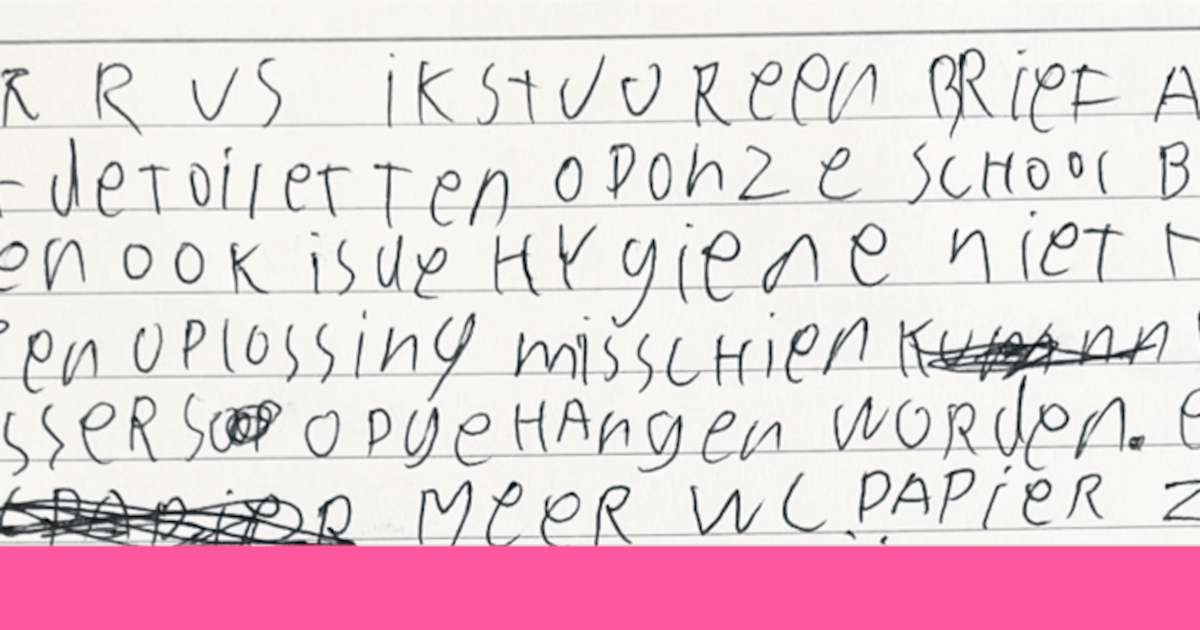 R R US iK STUUR een BRieF A
de TOileTTen OP ONZe SCHOOl B
en OOK is de HYgiene nieT
en OPlOSSing misSCHien
SSeRS OPgeHAngen WORden. e
MeeR WC PAPieR Z